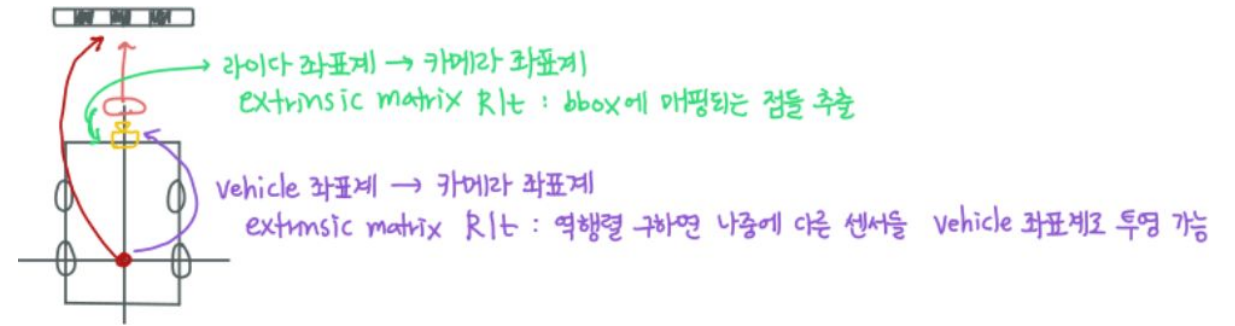 라이다 좌표계 → 카메라 좌표계
extrinsic matrix R|t : bbox에 매핑되는 점들 추출
vehicle 좌표계 → 카메라 좌표계
extrinsic matrix R|t : 역행렬 구하면 나중에 다른 센서들 vehicle 좌표계로 투영 가능